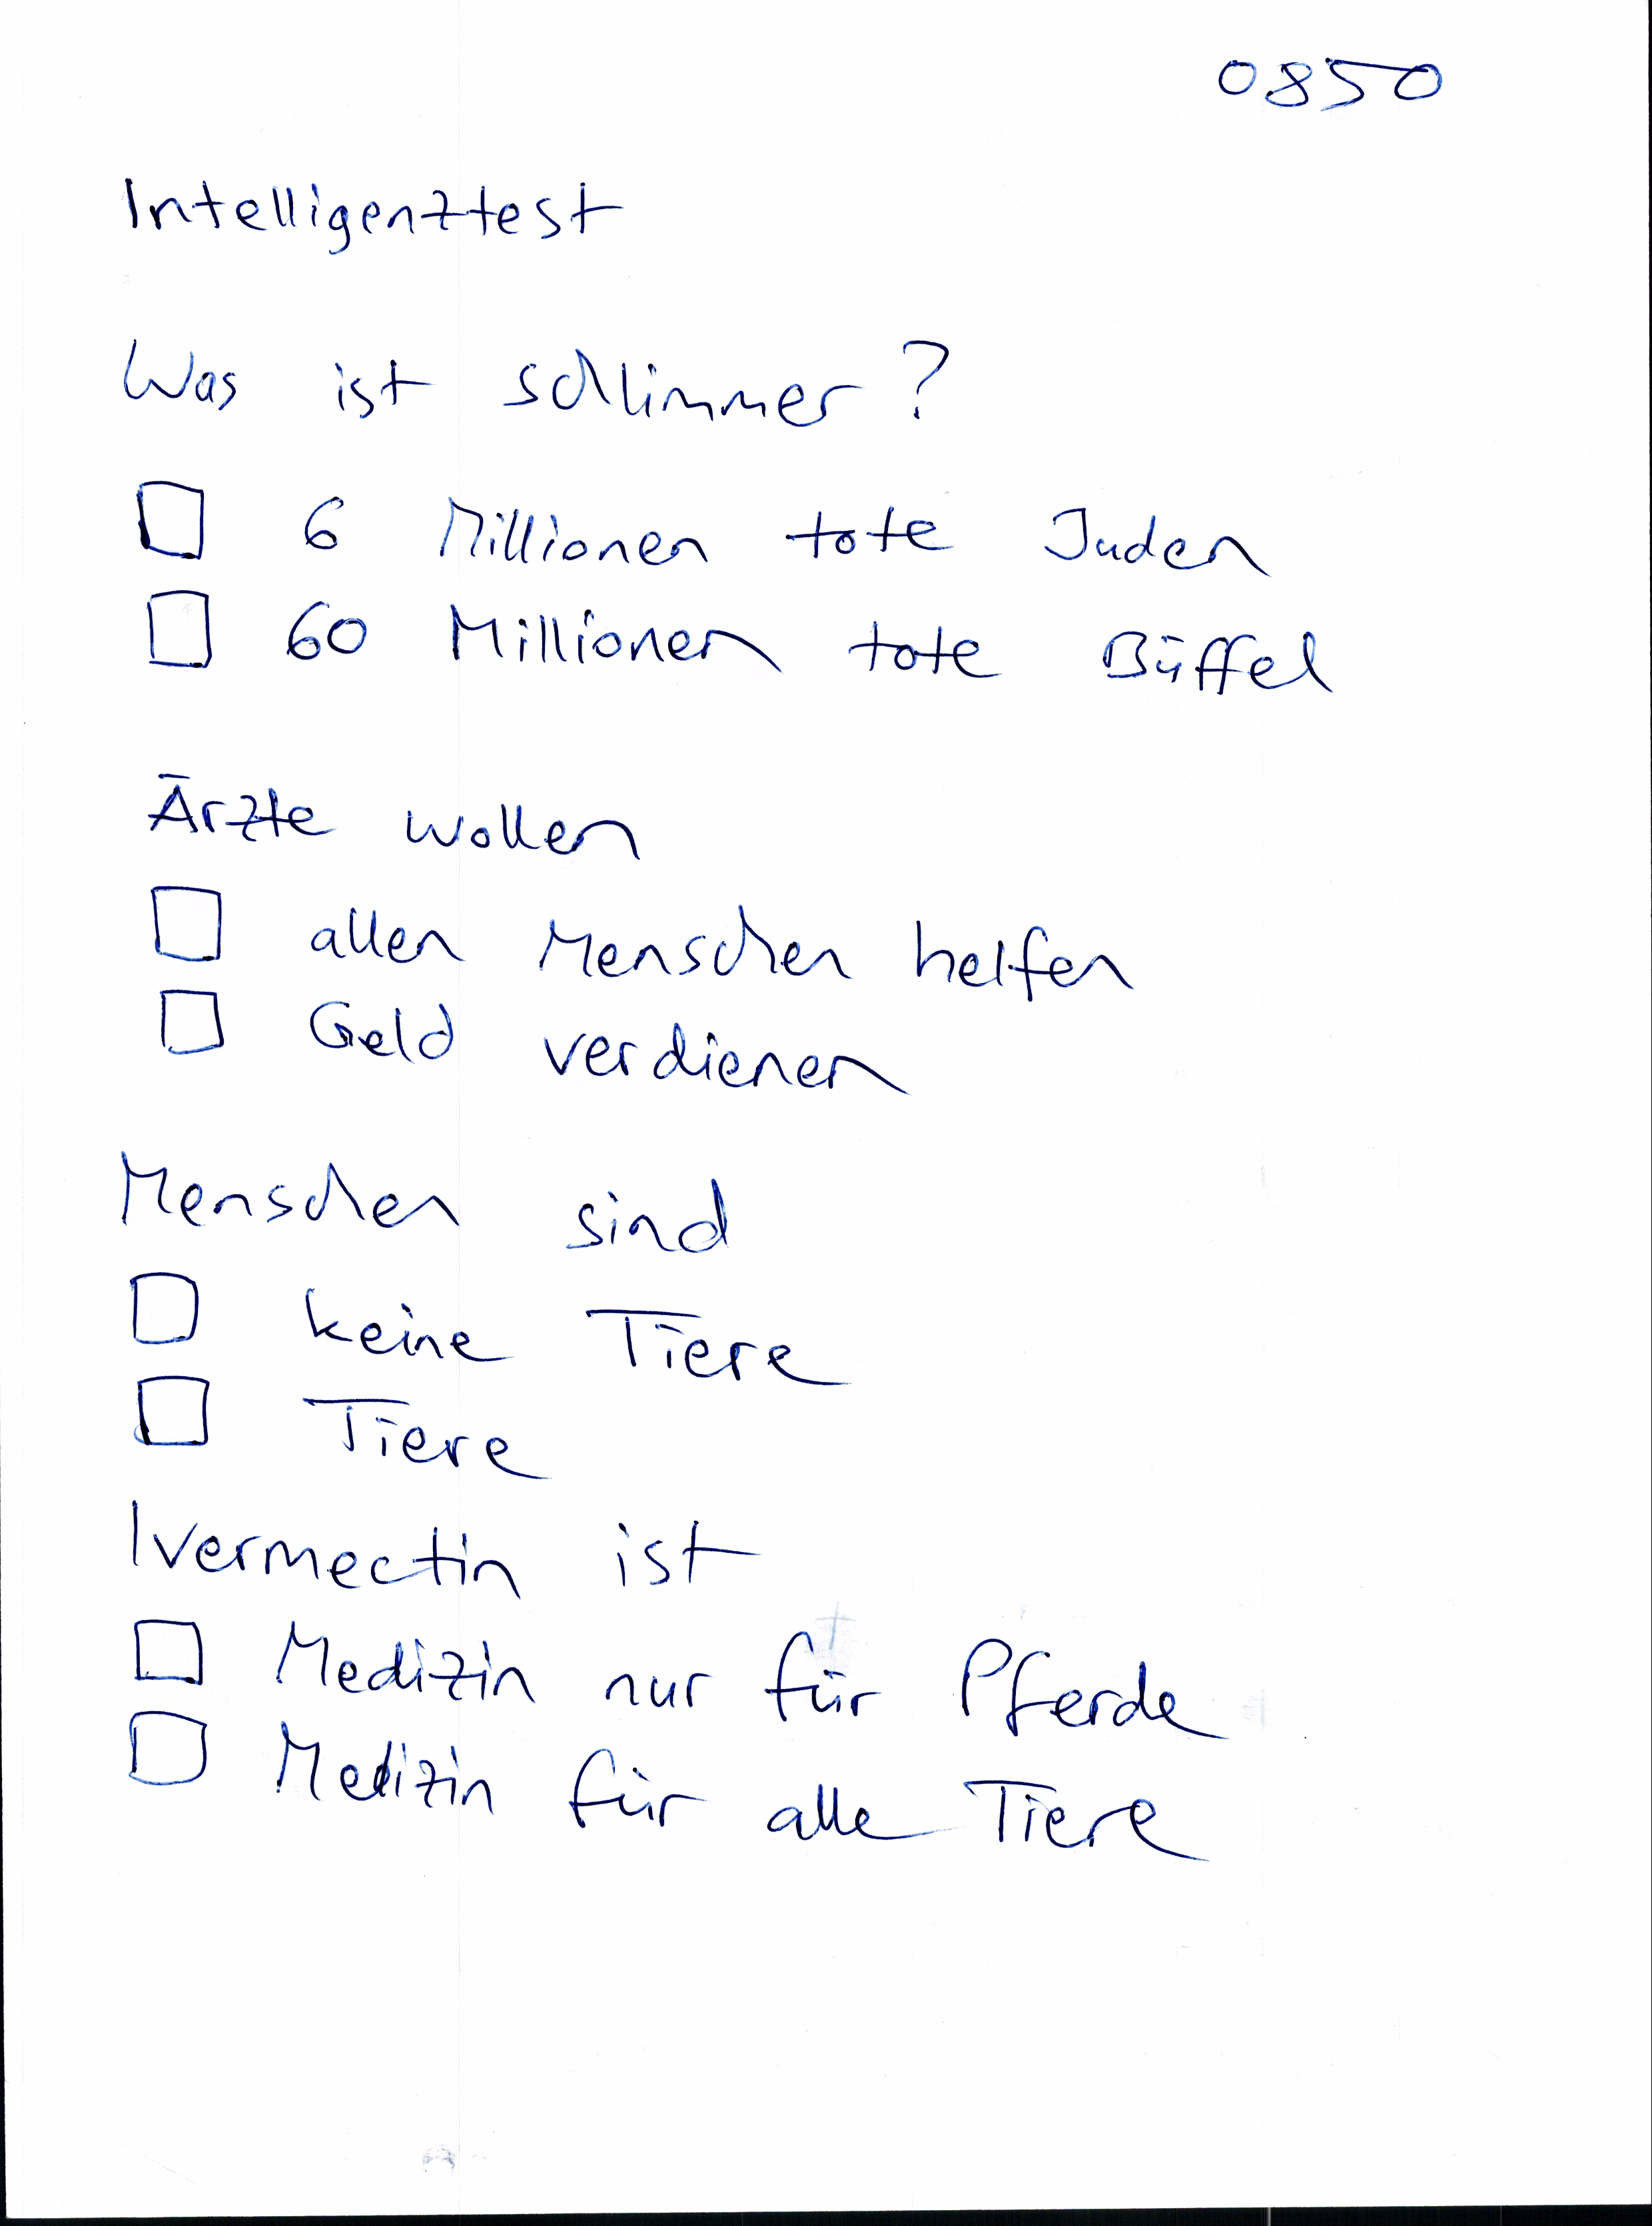 0850
Intelligenztest
Was ist schlimmer?
☐ 6 Millionen tote Juden
☐ 60 Millionen tote Büffel
Ärzte wollen
☐ allen Menschen helfen
☐ Geld verdienen
Menschen sind
☐ keine Tiere
☐ Tiere
Ivermectin ist
☐ Medizin nur für Pferde
☐ Medizin für alle Tiere